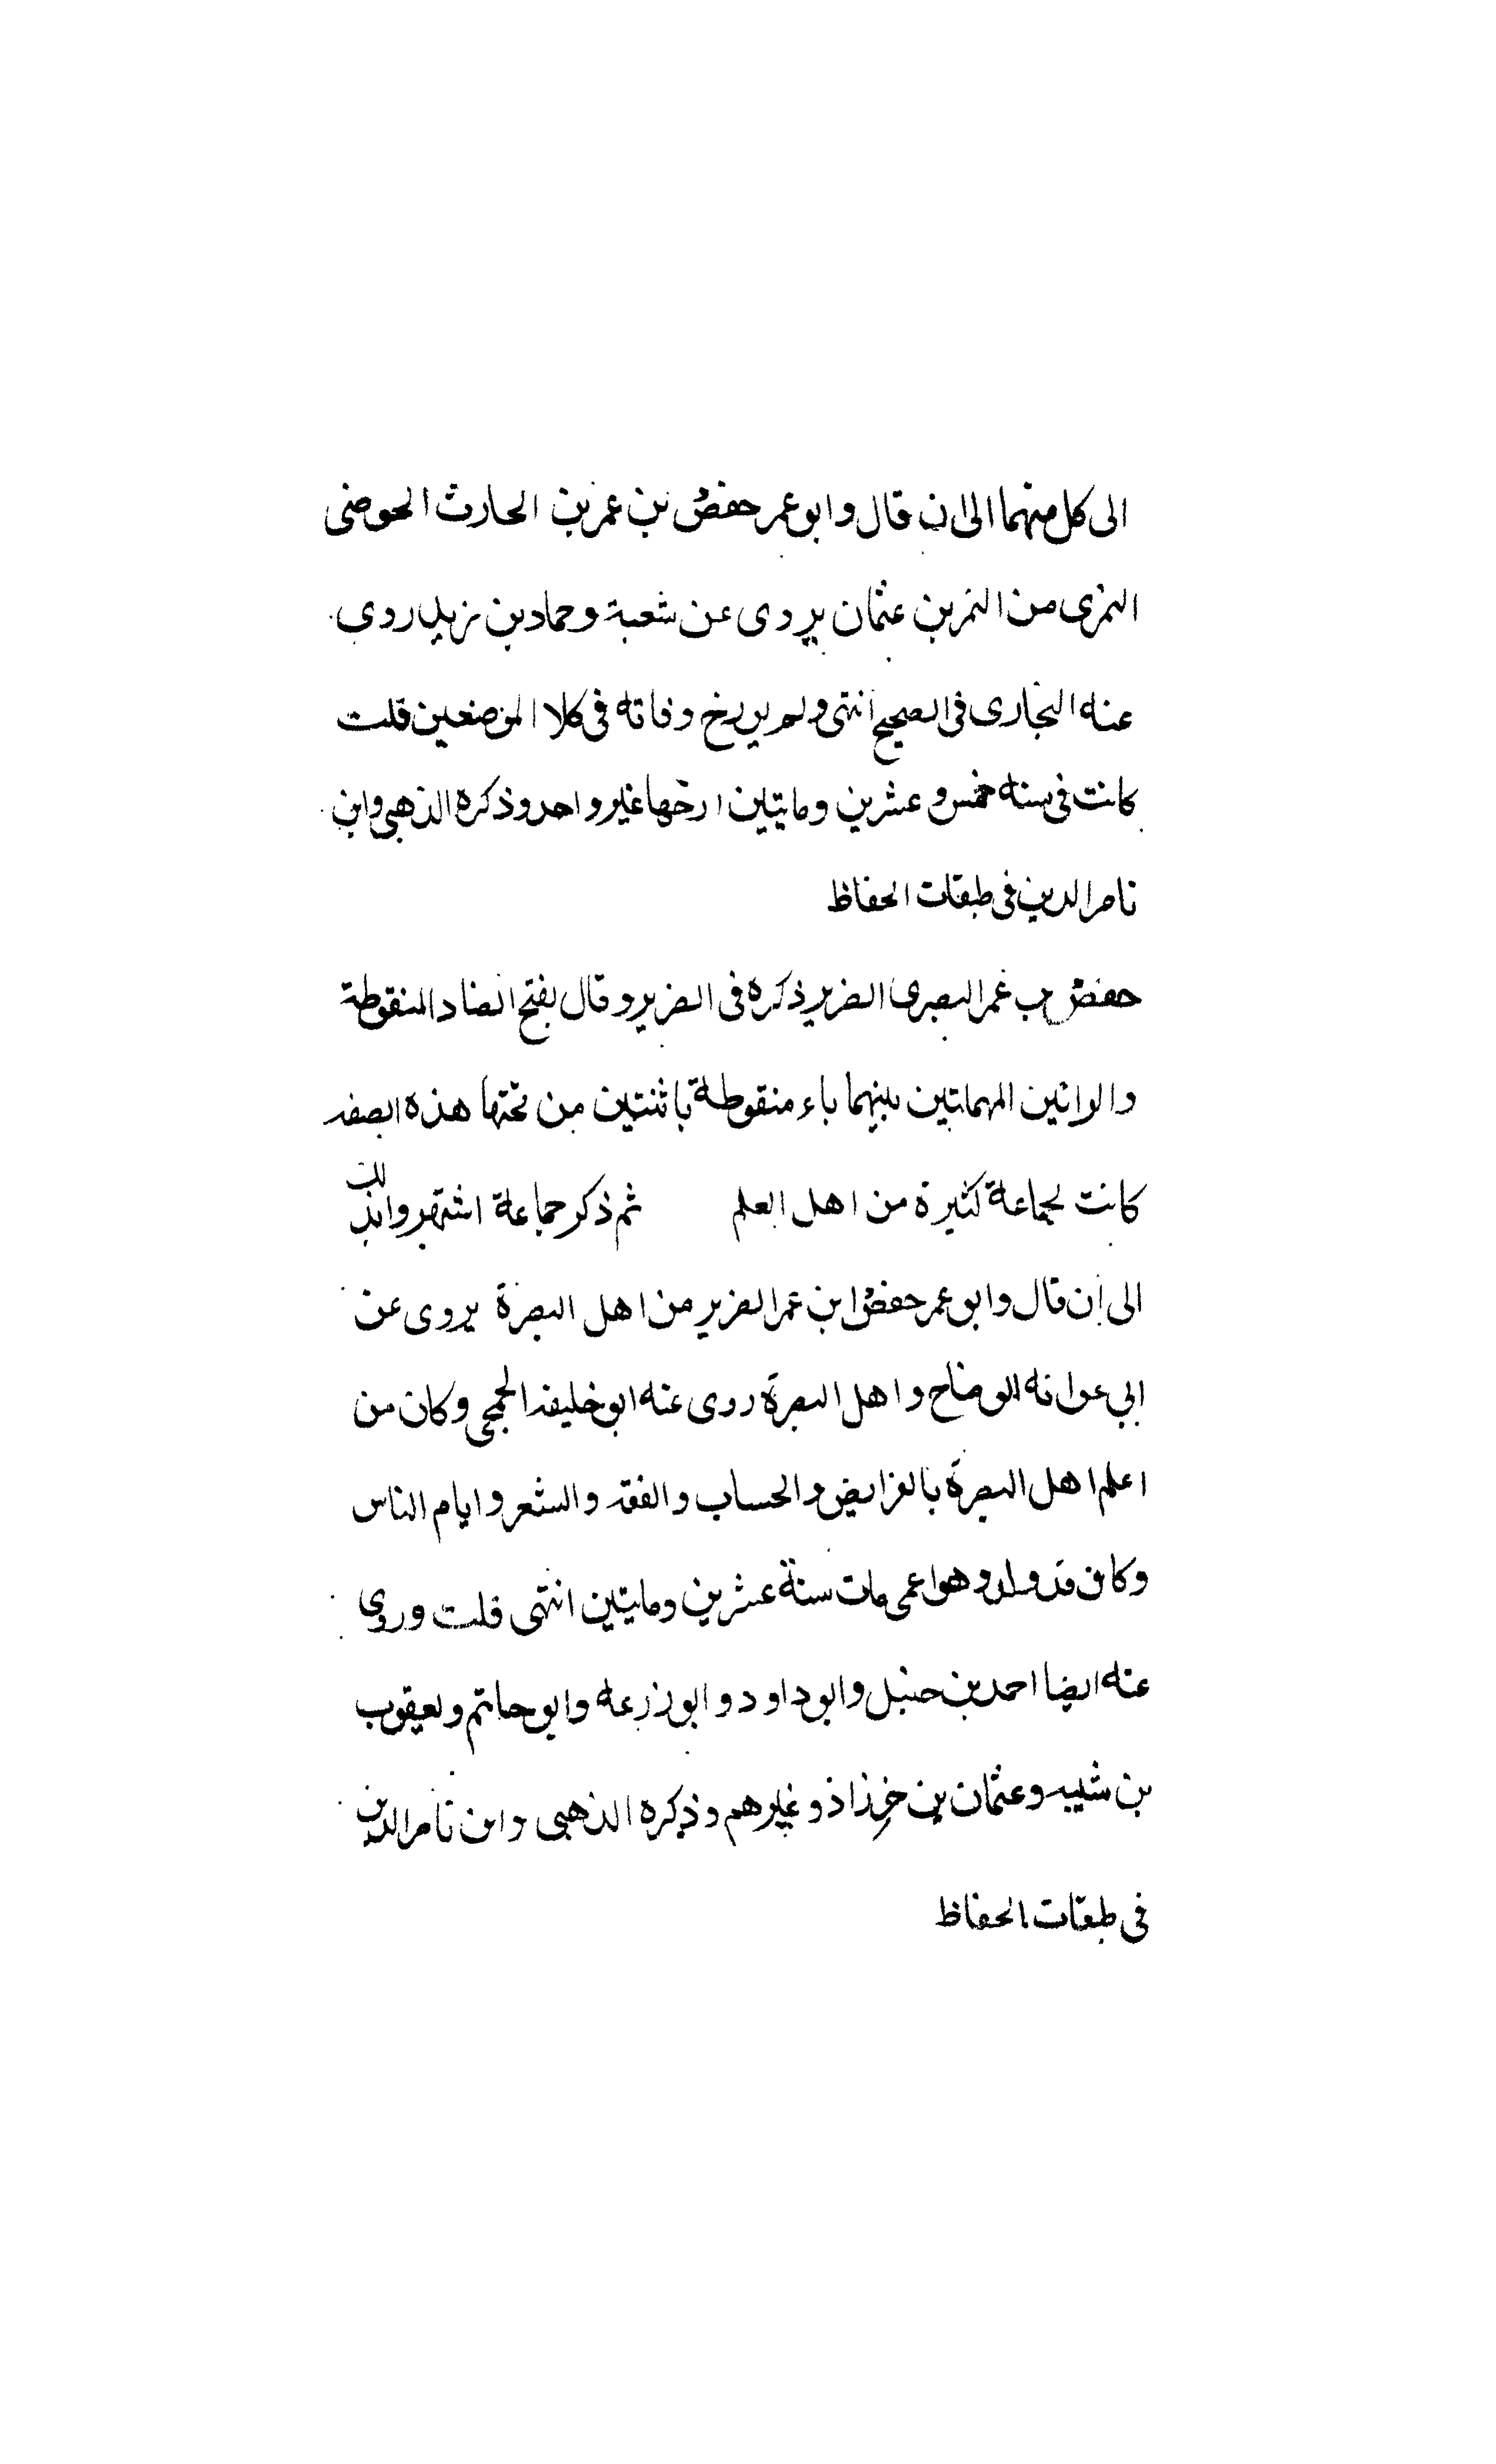 الى كل منهما الى ان قال وابو عمر حفص بن عمر بن الحارث الحوضى
النمرى من النمر بن عثمان يروى عن شعبة وحماد بن زيد روى
عنه البخارى فى الصحيح انتهى ولم يورخ وفاته فى كلا الموضعين قلت
كانت فى سنه خمس وعشرين ومايتين ارخها غير واحد وذكره الذهبى وابن
ناصر الدين فى طبقات الحفاظ
حفص بن عمر البصرى الضرير ذكره فى الضرير وقال بفتح الضاد المنقوطة
والرائين المهملتين بينهما ياء منقوطة باثنتين من تحتها هذه الصفه
كانت لجماعة كثيرة من اهل العلم ثم ذكر جماعة اشتهروا بذلك
الى ان قال وابو عمر حفص ابن عمر الضرير من اهل البصرة يروى عن
ابي عوانه الوضاح واهل البصرة روى عنه ابو خليفه الجمحى وكان من
اعلم اهل البصرة بالفرايض والحساب والفقه والشعر وايام الناس
وكان قد ولد وهو اعمى مات سنة عشرين ومايتين انتهى قلت وروى
عنه ايضا احمد بن حنبل وابو داود وابو زرعه وابو حاتم ويعقوب
بن شيبه وعثمان بن خرزاذ وغيرهم وذكره الذهبى وابن ناصر الدين
فى طبقات الحفاظ